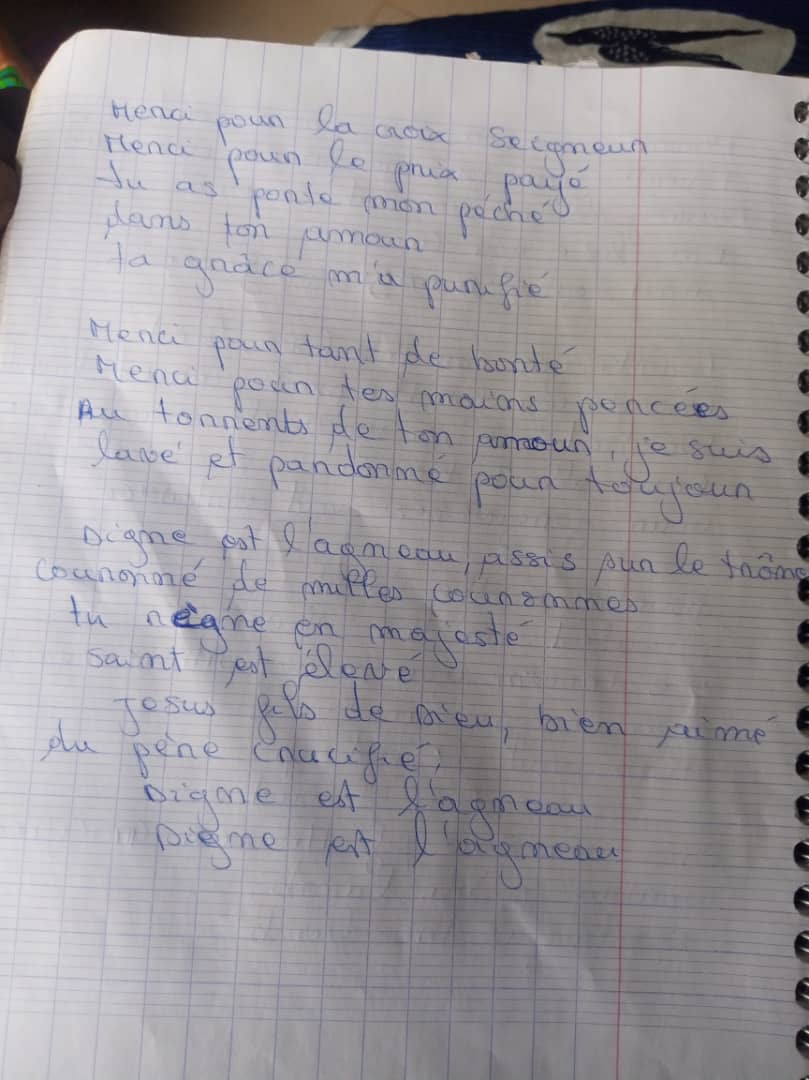 Merci pour la croix Seigneur
Merci pour le prix payé
tu as porté mon péché
dans ton amour
ta grâce m'a purifié
Merci pour tant de bonté
Merci pour tes mains percées
Au torrents de ton amour, je suis
lavé et pardonné pour toujour
Digne est l'agneau, assis sur le trône
couronné de milles couronnes
tu règne en majesté
saint est élevé
Jesus fils de Dieu, bien aimé
du père crucifié,
Digne est l'agneau
Digne est l'agneau